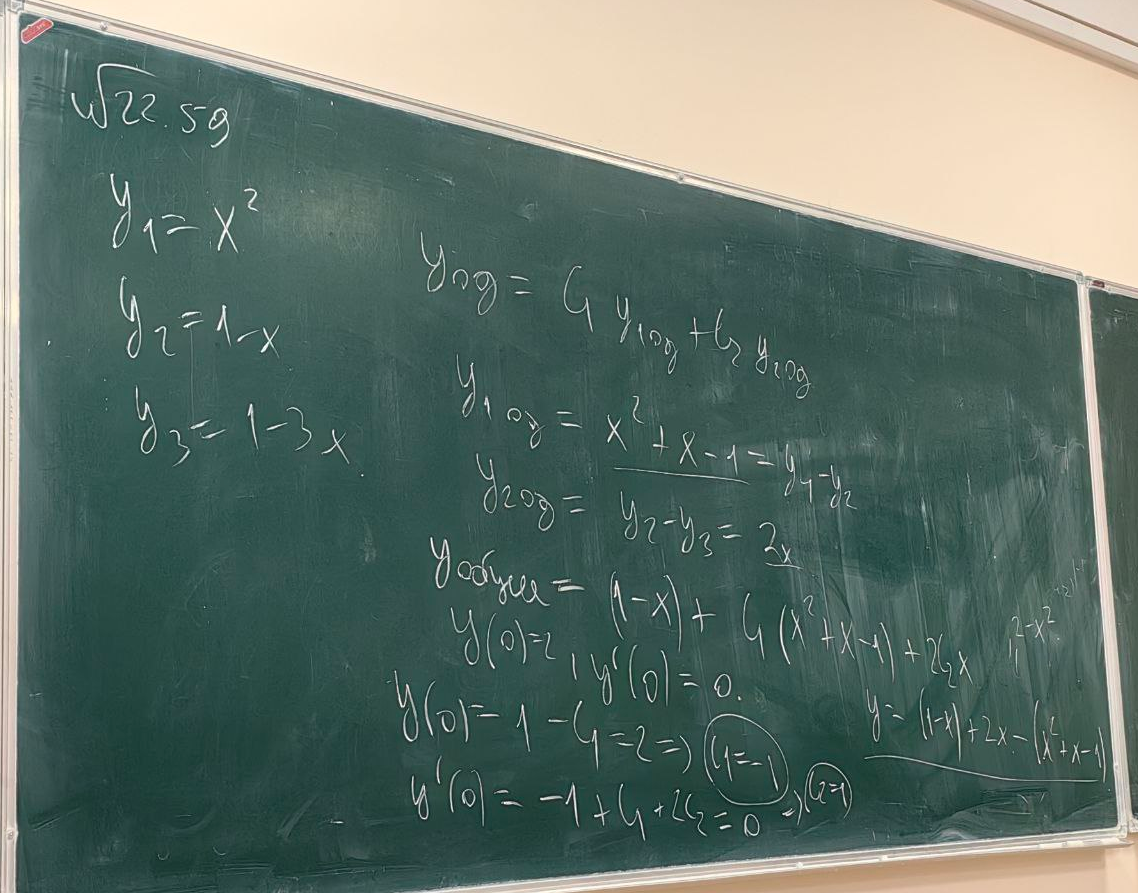 √22.59
y₁ = x²
y₂ = 1-x
y₃ = 1-3x
yод = C₁ y₁од + C₂ y₂од
y₁од = x² + x - 1 = y₁ - y₂
y₂од = y₂ - y₃ = 2x
yобщ = (1-x) + C₁(x² + x - 1) + 2C₂x
y(0)=2, y'(0) = 0.
y(0) = 1 - C₁ = 2 => C₁ = -1
y'(0) = -1 + C₁ + 2C₂ = 0 => C₂=1
y = (1-x) + 2x - (x² + x - 1)